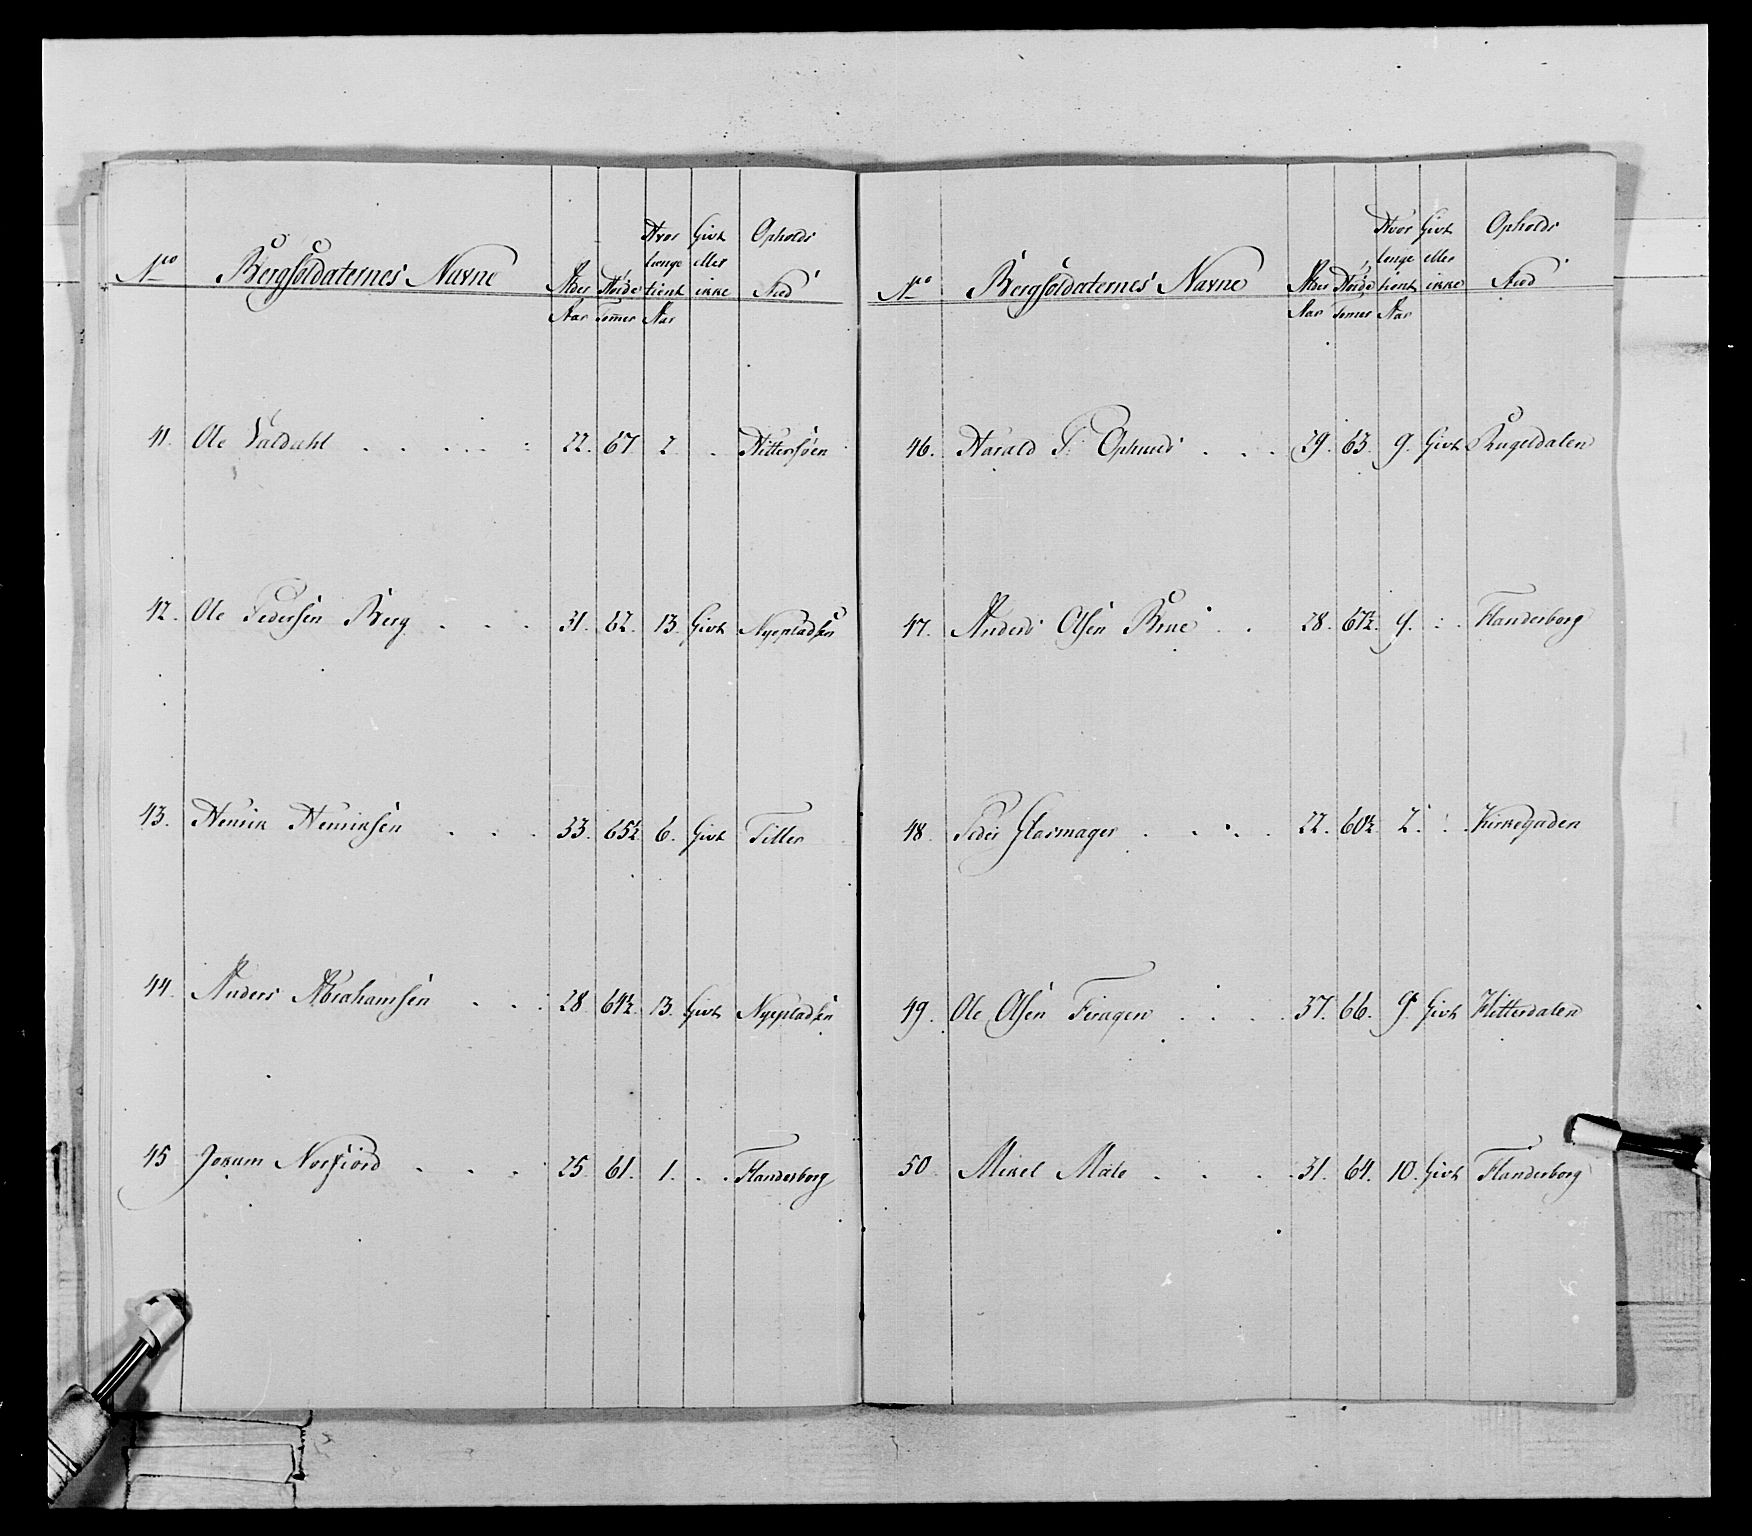 Hvor Givt Opholds
længe eller
No Bergsoldaternes Navne Alder Høide tient ikke Sted
Aar Tomer Aar
41. Ole Valdahl . . . . . 22. 67. 2. . Hittersøen
42. Ole Pedersen Berg . . . 31. 62. 13. Givt Nyepladsen
43. Henrik Henriksen . . . 33. 65½ 6. Givt Tiller
44. Anders Abrahamsen . . . 28. 64½. 13. Givt Nyepladsen
45 Jokum Norfiord . . . 25. 61. 1. . . Flanderborg
Hvor Givt Opholds
længe eller
No Bergsoldaternes Navne Alder Høide tient ikke Sted
Aar Tomer Aar
46. Harald T. . . . 29. 63. 9. Givt Rugeldalen
47. Anders Olsen Brue . . 28. 67½. 9. : . Flanderborg
48. Peder Glasmager . . . . 22. 60½. 2. : . Kirkegaden
49. Ole Olsen Feragen . . . . 37. 66. 9. Givt Hitterdalen
50. Mikel Malo . . . . 31. 64. 10. Givt Flanderborg